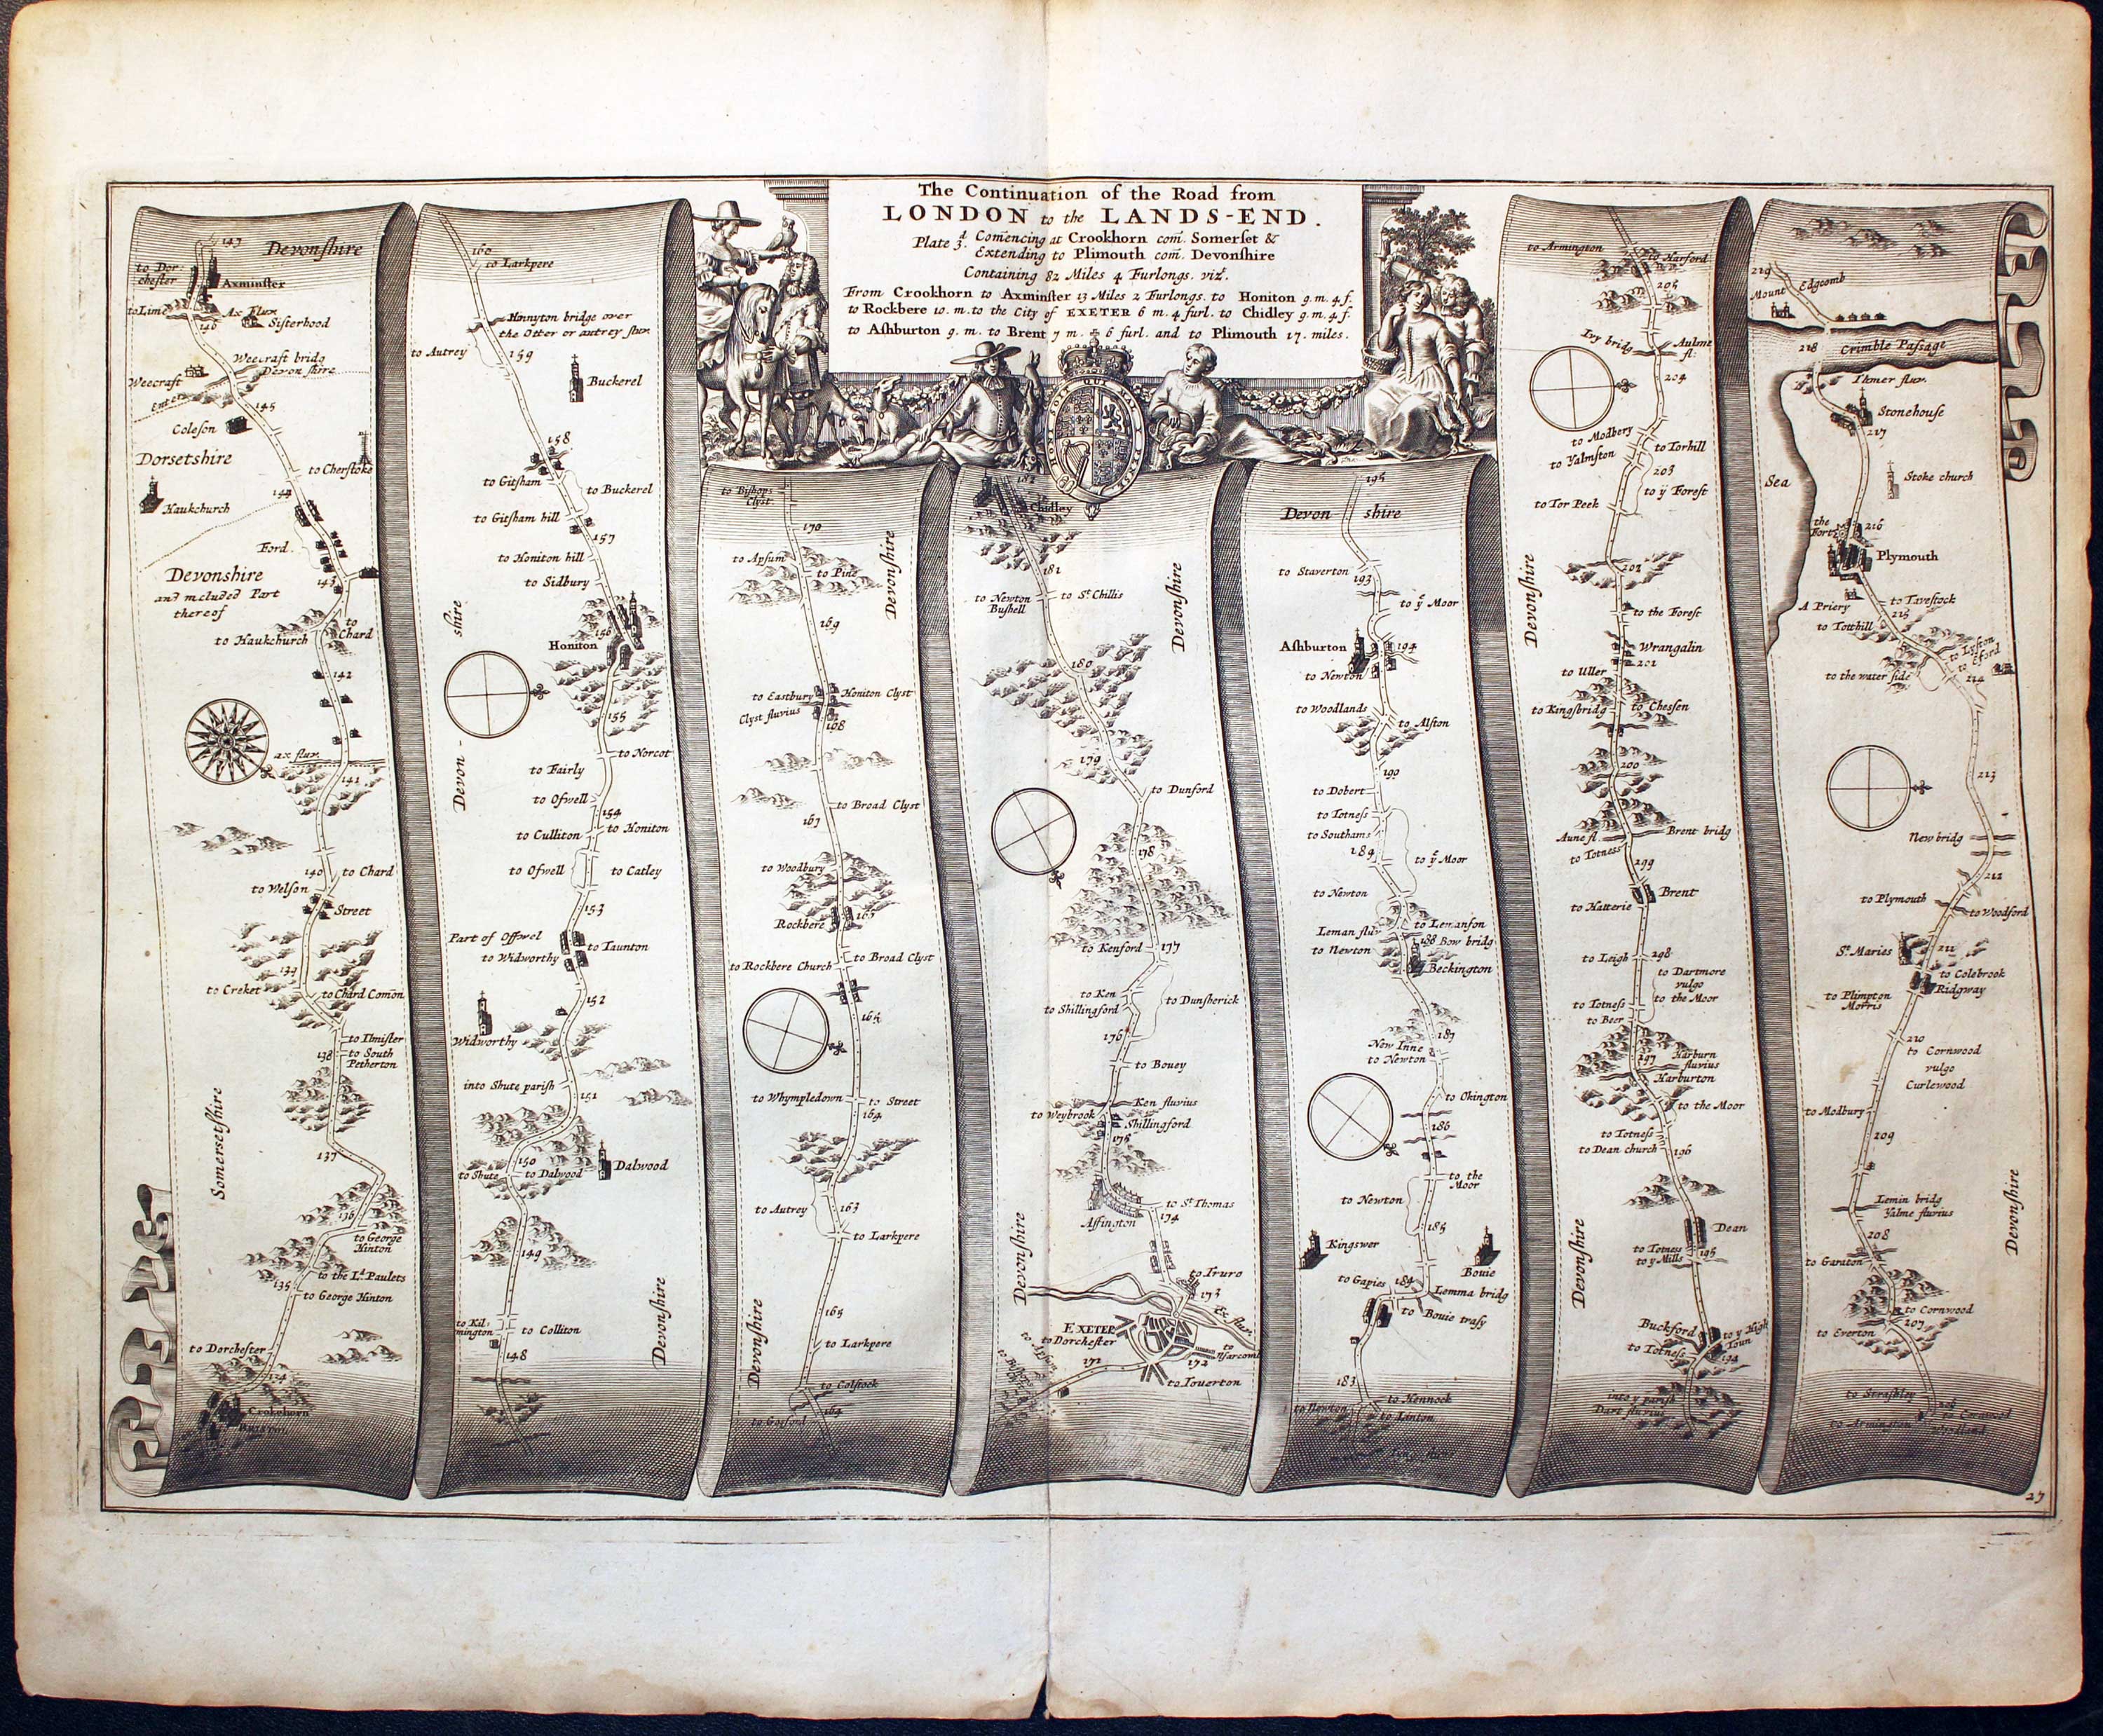 The Continuation of the Road from
LONDON to the LANDS-END.
Plate 3d. Comencing at Crookhorn com. Somerset &
Extending to Plimouth com. Devonshire
Containing 82 Miles 4 Furlongs. vizt.
From Crookhorn to Axminster 13 Miles 2 Furlongs. to Honiton 9. m. 4 f.
to Rockbere 10. m. to the City of EXETER 6 m. 4 furl. to Chidley 9. m. 4 f.
to Ashburton 9. m. to Brent 7 m. 6 furl. and to Plimouth 17. miles.
HONI SOIT QUI MAL Y PENSE
147
Devonshire
to Dor
chester
Axminster
to Lime
Ax Flux
146
Sisterhood
Weecraft bridg
Devonshire
Weecraft
Enter
145
Coleson
Dorsetshire
to Cherstoke
144
Haukchurch
Ford
Devonshire
and included Part
thereof
143
to Haukchurch
to
Chard
142
ax flux
141
140
to Chard
to Welson
Street
139
to Creket
to Chard Comon
to Ilmister
138
to South
Petherton
Somersetshire
137
136
to George
Hinton
to the Ld. Paulets
135
to George Hinton
to Dorchester
134
Crokehorn
160
to Larkpere
Honnyton bridge over
the Otter or autrey flux
to Autrey
159
Buckerel
158
to Gitsham
to Buckerel
to Gitsham hill
157
to Honiton hill
to Sidbury
156
Honiton
Devon-
shire
155
to Norcot
to Fairly
to Ofwell
154
to Culliton
to Honiton
to Ofwell
to Catley
153
Part of Offwel
to Taunton
to Widworthy
152
Widworthy
into Shute parish
151
150
to Shute
to Dalwood
Dalwood
149
Devonshire
to Kil-
mington
to Colliton
148
to Bishops
Clyst
170
to Apsum
to Pine
Devonshire
169
to Eastbury
Honiton Clyst
Clyst fluvius
168
to Broad Clyst
167
to Woodbury
Rockbere
to Broad Clyst
to Rockbere Church
165
to Whympledown
to Street
164
to Autrey
163
to Larkpere
Devonshire
to Larkpere
to Colstock
to Gosford
182
Chidley
181
to Newton
Bushell
to St. Chillis
Devonshire
180
179
to Dunford
178
to Kenford
177
to Ken
to Dunsherick
to Shillingford
176
to Bouey
Ken fluvius
to Weybrook
Shillingford
175
Affington
to St. Thomas
174
Devonshire
to Truro
173
Ex flux
EXETER
to Dorchester
171
172
to Touerton
195
Devon-
shire
to Staverton
193
to ye Moor
Ashburton
194
to Newton
to Woodlands
to Alston
190
to Dobert
to Totness
to Southams
189
to ye Moor
to Newton
to Lemanson
Leman flux
188 Bow bridg
to Newton
Beckington
187
New Inne
to Newton
to Okington
186
to the
Moor
to Newton
185
Kingswer
Bouie
to Gapies
184
Lemma bridg
to Bouie trasy
183
to Hennock
to Newton
to Linton
to Armington
to Harford
205
Ivy bridg
Aulme
fl:
204
to Modbery
to Yalmston
to Torhill
203
to Tor Peek
to ye Forest
202
Devonshire
to the Forest
Wrangalin
201
to Uller
to Kingsbridg
to Chessen
200
Aune fl.
Brent bridg
to Totness
199
Brent
to Hatterie
to Leigh
198
to Dartmore
vulgo
to the Moor
to Totness
to Beer
197
Harburn
fluvius
Harburton
to the Moor
to Totness
to Dean church
196
Dean
to Totness
to ye Mills
195
Devonshire
Buckford
to ye High
Toun
to Totness
194
into ye parish
Dart fluvius
219
Mount Edgcomb
218
Crimble Passage
Thmer flux.
Stonehouse
217
Sea
Stoke church
the
Fort
216
Plymouth
A Priery
to Tavestock
215
to Totthill
to Lyston
to Eford
to the water side
214
213
New bridg
212
to Plymouth
to Woodford
St. Maries
211
to Colebrook
Ridgway
to Plimpton
Morris
210
to Cornwood
vulgo
Curlewood
to Modbury
209
Lemin bridg
Yalme fluvius
208
to Garaton
Devonshire
to Cornwood
207
to Everton
to Strashley
206
to Armington
to Cornwood
27